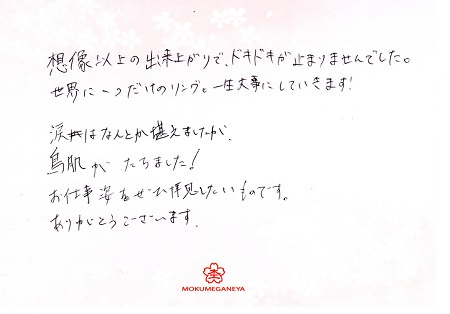 想像以上の出来上がりで、ドキドキが止まりませんでした。
世界に一つだけのリング。一生大事にしていきます!
涙はなんとか堪えましたが、
鳥肌がたちました!
お仕事姿をぜひ拝見したいものです。
ありがとうございます。
MOKUMEGANEYA